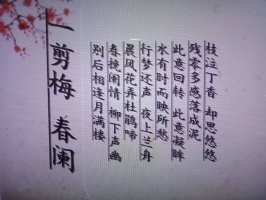 一剪梅 春阑
别后相逢月满楼
春挽阑情 柳下声幽
晨风花弄杜鹃啼
行梦还声 夜上兰舟
水有时而映所愁
此意回转 此意凝眸
残零多感落成泥
枝泣丁香 却思悠悠